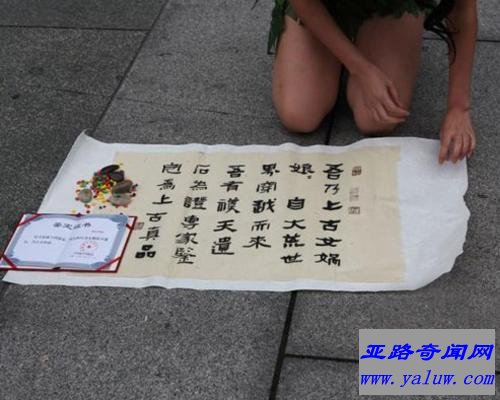 吾乃上古女媧
娘自大荒世
界穿越而來
吾有補天遺
石為證專家鑒
定為上古真品
鉴定证书
亚路奇闻网
www.yaluw.com